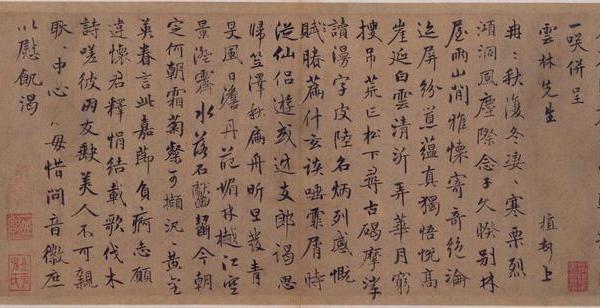 一咲併呈
雲林先生
冉〻秋復冬淒〻寒栗烈
澒洞風塵際念子久暌別林
屋兩山間雅懷寄奇絕淪
迹屏紛囂蘊真獨悟悅高
崖延白雲清沂弄華月窮
搜吊荒亡松下尋古碣摩挲
讀漫字皮陸名炳列感慨
賦勝篇什玄談唾霏屑時
從仙侶遊或逆支郎謁思
歸笠澤秋扁舟昕旦發青
旻風日澹丹葩媚林樾江空
景澄霽水落石齒齧今朝
定何朝霜菊馨可擷況〻黃金
英眷言此嘉節負痾志願
違懷君釋悁結載歌伐木
詩嗟彼朋友缺美人不可親
耿〻中心〻毋惜問音徽庶
以慰飢渴